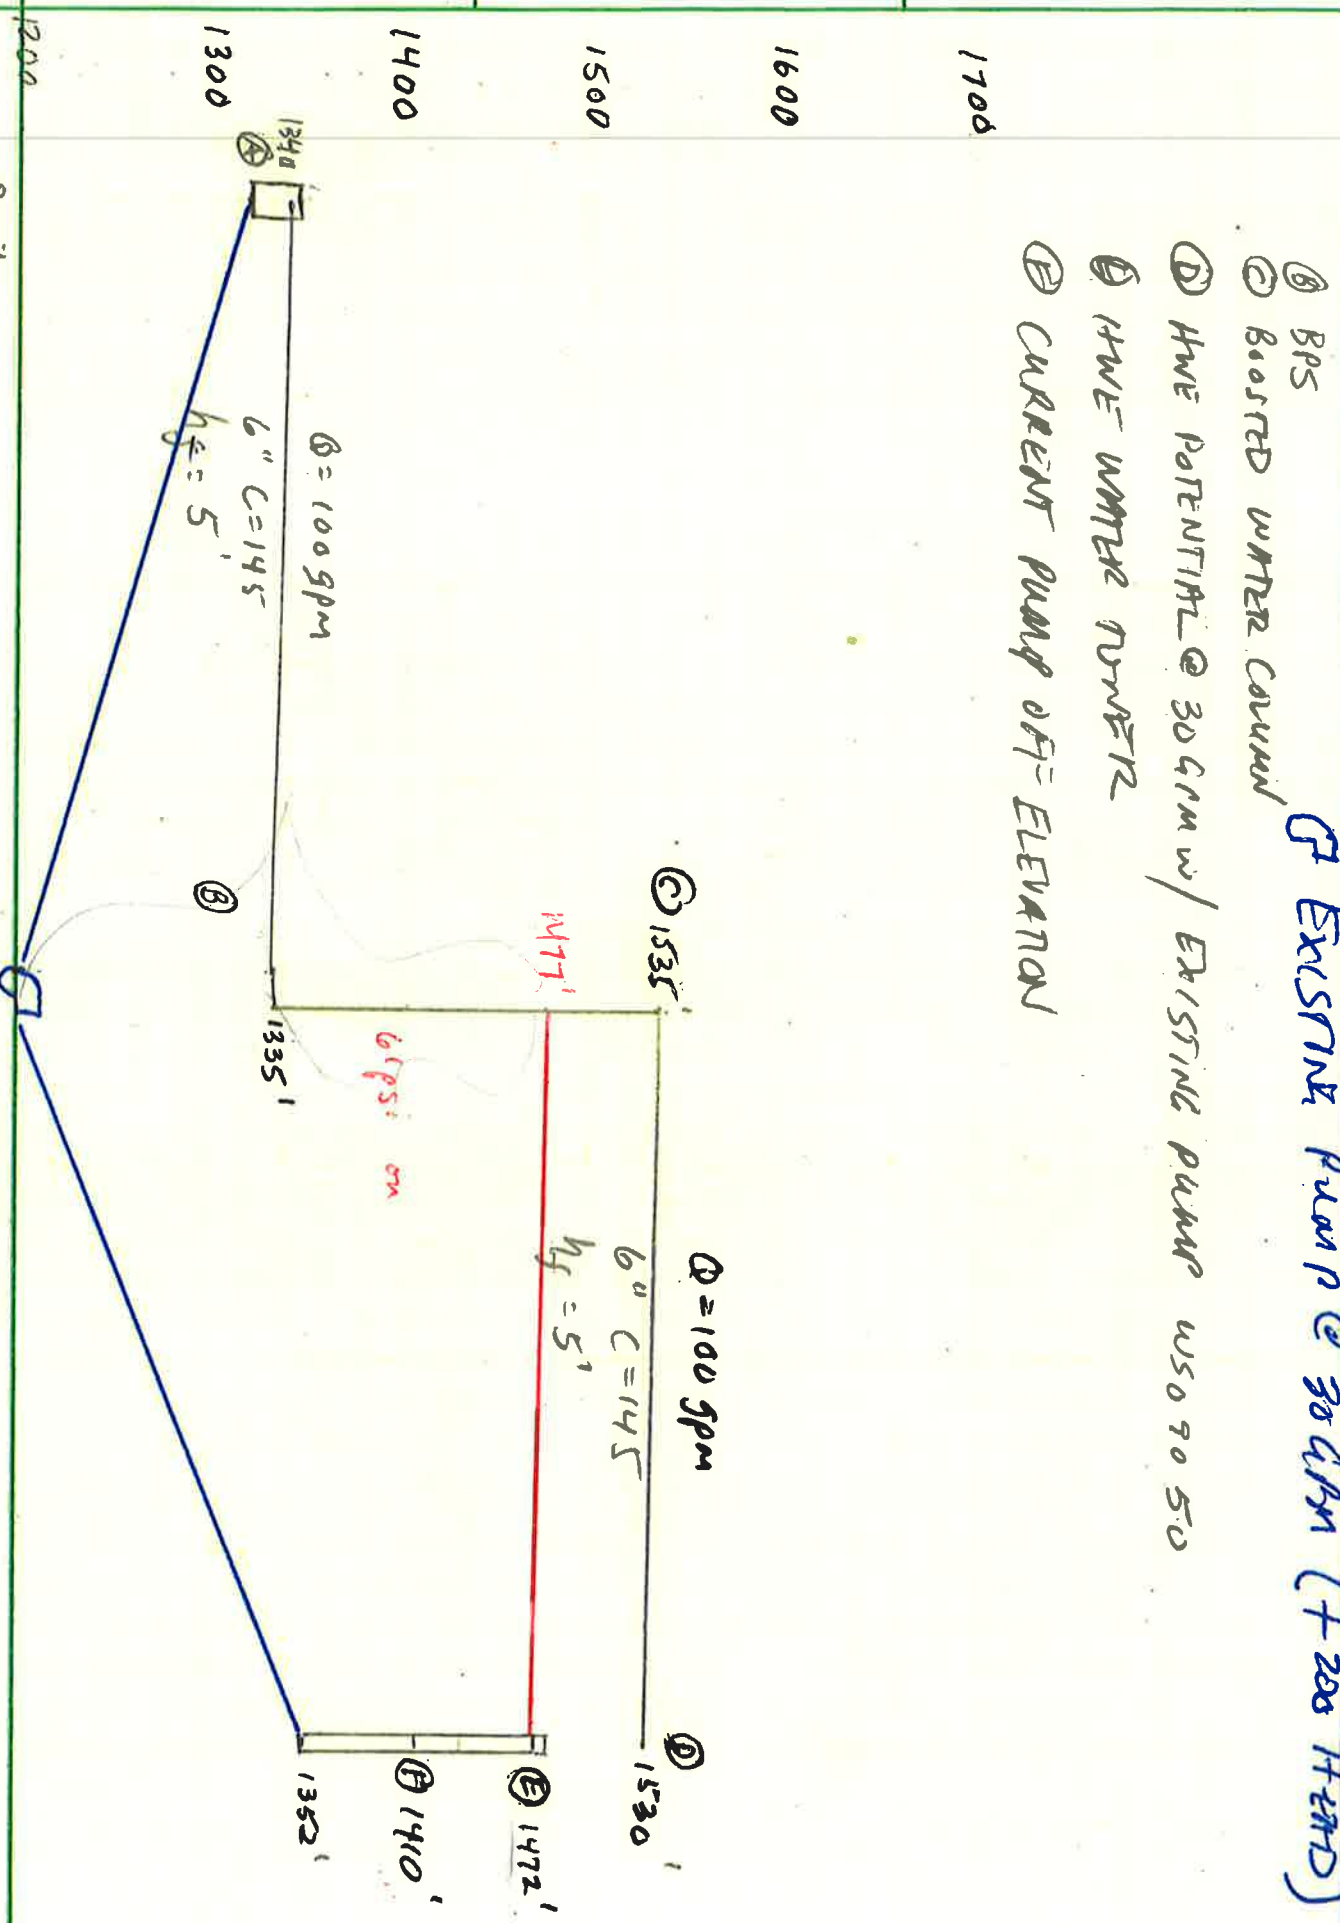 Existing Pump @ 30 GPM (+200 HEAD)
Ⓑ BPS
Ⓒ BOOSTED WATER COLUMN
Ⓓ HWE POTENTIAL @ 30 GPM w/ EXISTING PUMP
HWE WATER TOWER
Ⓕ CURRENT PUMP OFF ELEVATION
1700
1600
1500
1400
1300
1200
1340
Ⓐ
Q = 100 gpm
6" C = 145
hf = 5'
Ⓑ
1335'
Ⓒ 1535'
1477'
psi on
Q = 100 gpm
6" C = 145
hf = 5'
Ⓓ
1530'
Ⓔ 1472'
Ⓕ 1410'
1352'